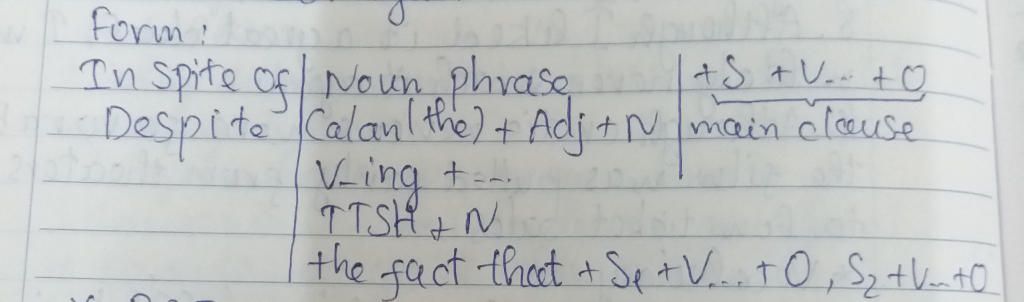 Form:
In spite of | Noun phrase | + S + V... + O
Despite | (a/an/the) + Adj + N | main clause
V-ing + ...
TTSH + N
the fact that + S1 + V... + O, S2 + V... + O